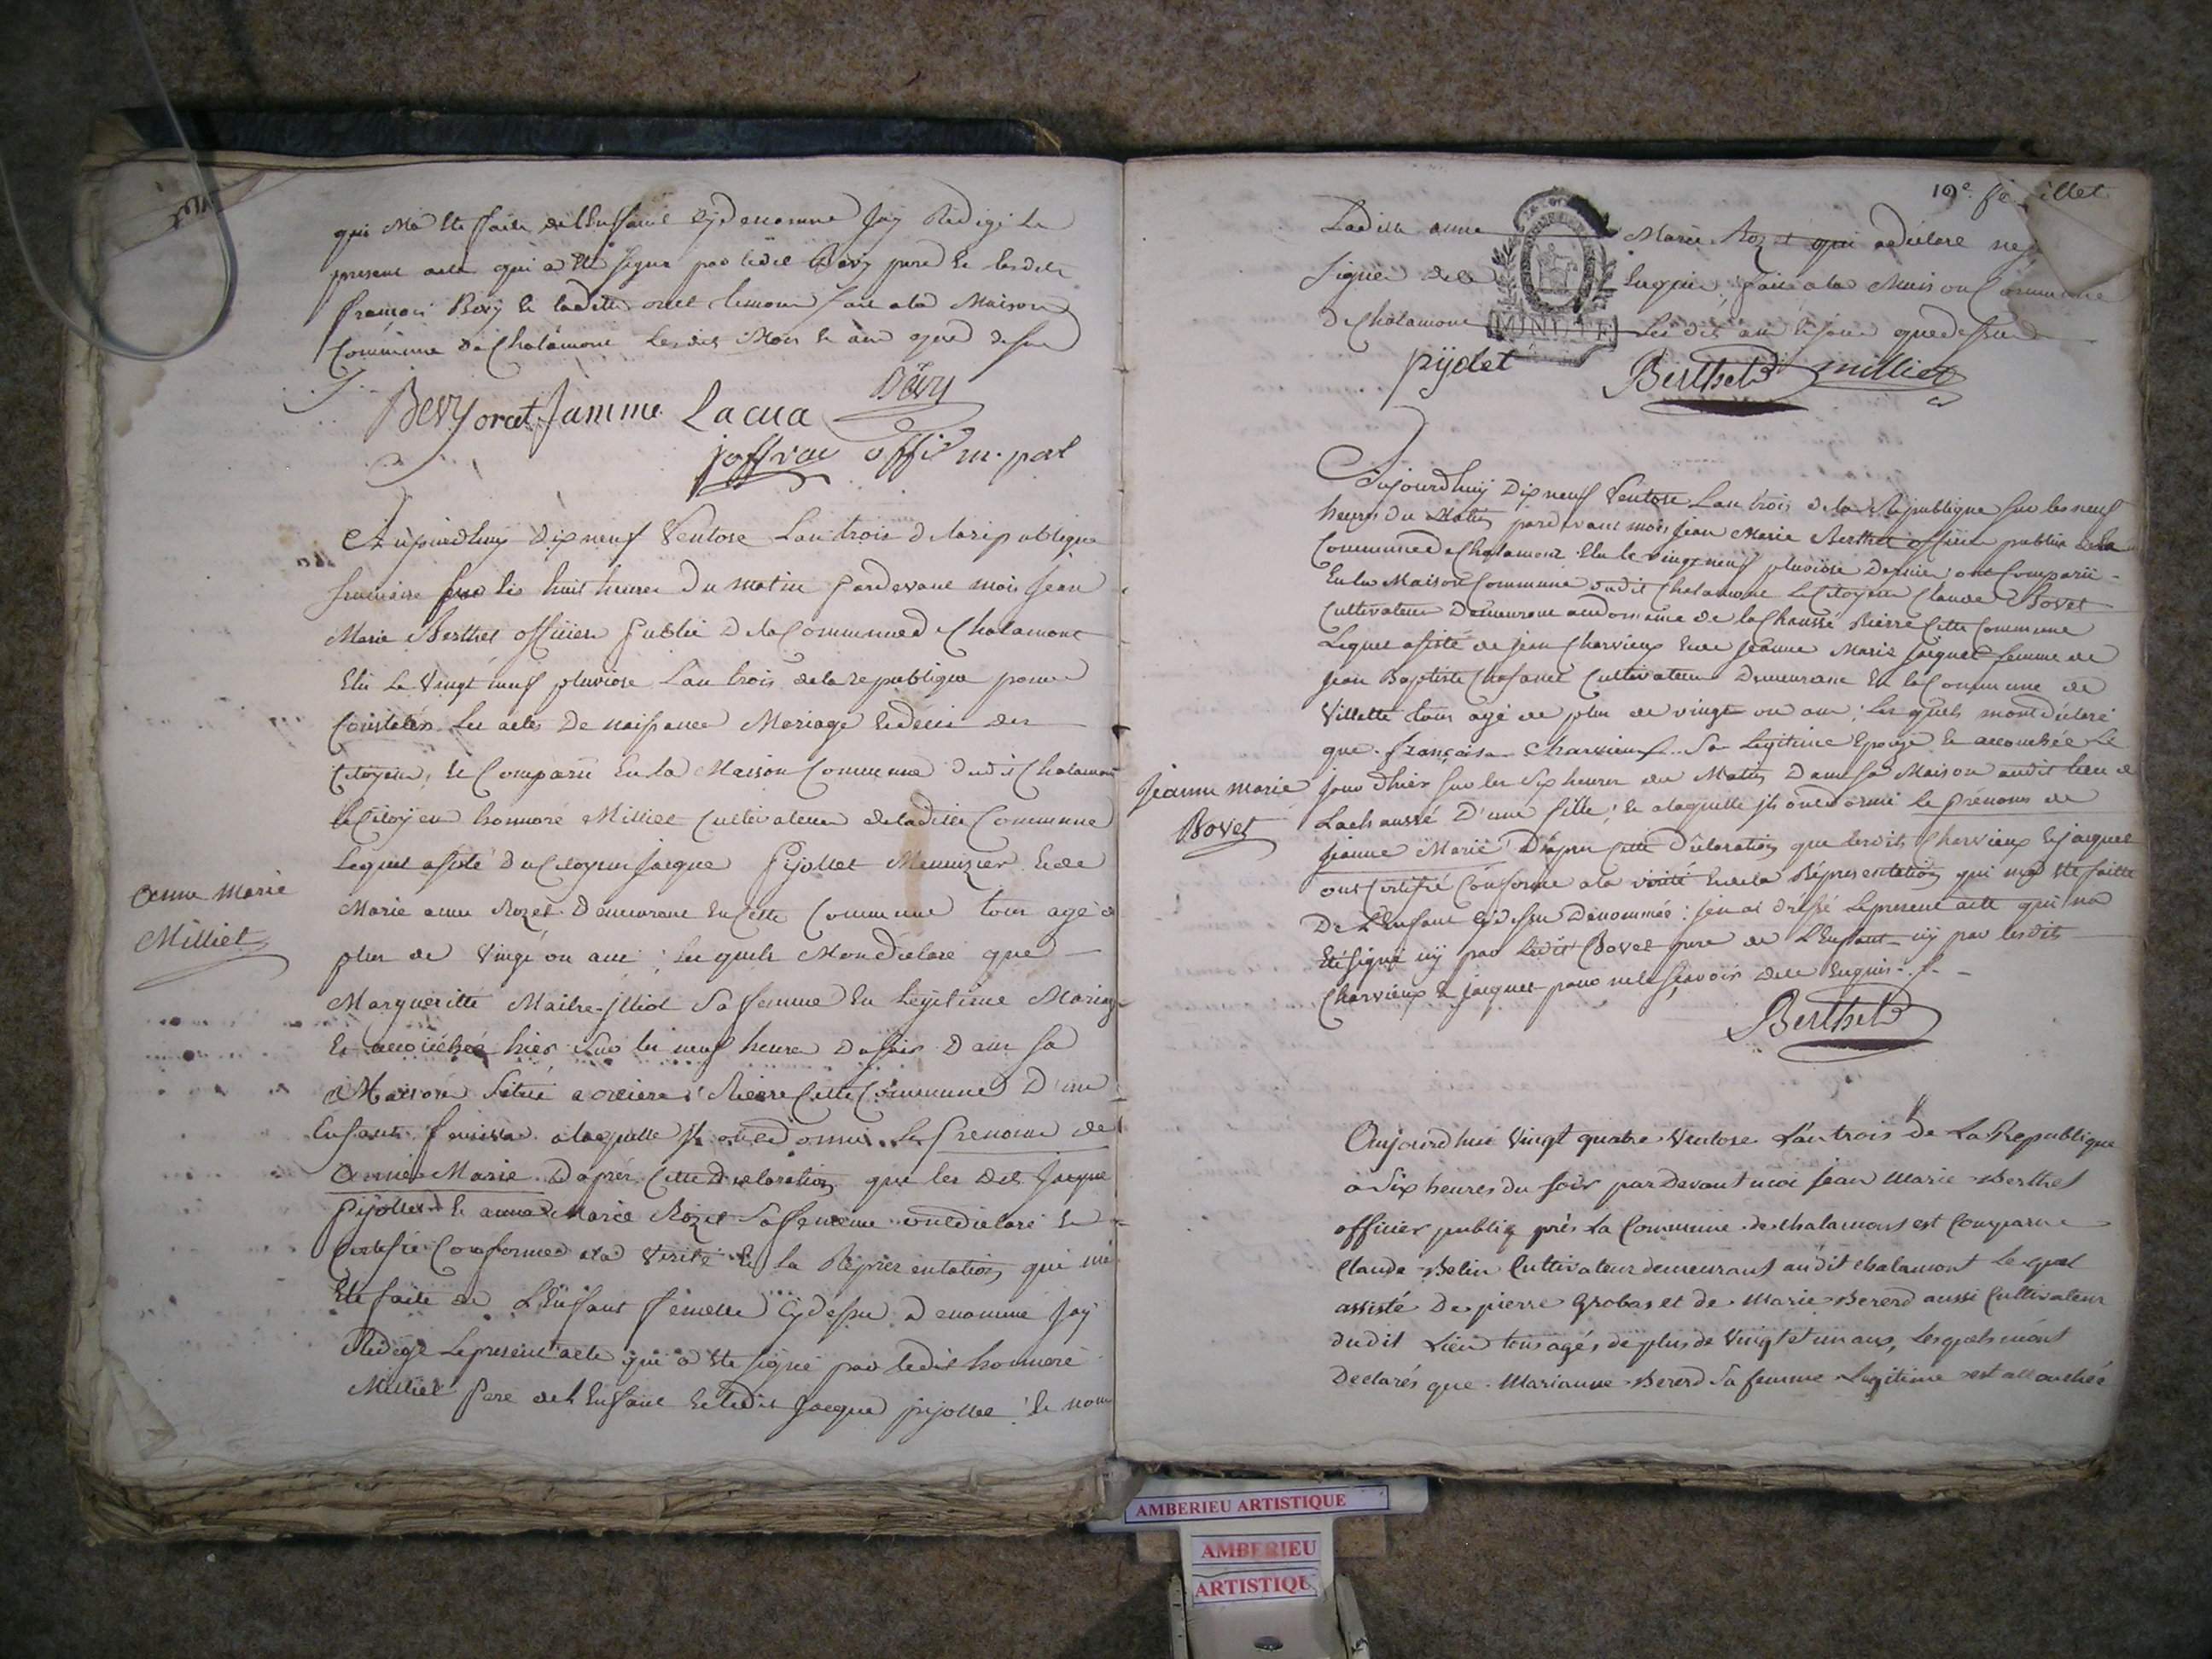 qui Ma Ete faite de l'Enfant Cy denomme Jay Redigé Le
present acte qui a Ete signe par ledit Bevy pere Et lesdits
françois Bevy Et ladite orcet temoin fait a la Maison
Commune de Chalamont Lesdits Mois Et an que dessus
Bevy orcet Jamme Lacua Bévy
joffray offi m. pal
Aujourdhuy dix neuf Ventose Lan trois de la republique
sur les huit heures du matin Pardevant mois Jean
Marie Berthet officier Public De la Commune de Chalamont
Elu Le Vingt neuf pluviose Lan trois de la republique pour
Constater Les actes De naissance Mariage Et deces des
Citoyens, Et Comparu En la Maison Commune dudit Chalamont
le Citoyen honnoré Milliet Cultivateur de ladite Commune
Lequel assisté du Citoyen Jacque Pijollet Menuizier Et de
Marie anne Rozet Demeurant En Cette Commune tous agé de
plus de Vingt un ans ; les quels Mon Declaré que
Margueritte Maitre-jlliot Sa femme En Legitime Mariage
Et accouchée hier Sur les neuf heures du soir Dans sa
Maison Situé a Riere Cette Commune D'un
Enfant femelle a laquelle jls ont Donné Le Prenom de
Anne Marie
Milliet
Anne Marie D'aprés Cette Declaration que les dits Jacque
Pijollet Et anne Marie Rozet Sa femme ont déclaré Et
Certifié Conforme a la Verité Et la Représentation qui ma
Ete faite de L'Enfant femelle Cy dessu denomme Jay
Redige Le present acte qui a Ete signé par ledit honnoré
Milliet Pere de l'Enfant Et ledit Jacque pijollet Et non
19e feuillet
Ladite anne Marie Rozet qui a déclaré ne
Signer de ce Enquis, fait a la Maison Commune
de Chalamont Les dits an Et jour que dessus
MINUTE
pijolet Berthet milliet
Aujourdhuy Dix neuf Ventose Lan trois de la République sur les neuf
heures du Matin pardevant mois Jean Marie Berthet officier public de la
Commune de Chalamont Elu le vingt neuf pluviose Dernier ont Comparu
En la Maison Commune dudit Chalamont Le Citoyen Claude Bovet
Cultivateur Demeurant au domaine de la Chaussé Rierre Cette Commune
Lequel assisté de Jean Charvieux Et de Jeanne Marie Jacquet femme de
Jean Baptiste Chafanet Cultivateur Demeurant En la Commune de
Villette tous agé de plus de vingt un ans ; Les quels mont déclaré
que françoise Charvieux Sa Legitime Epouse Et accouchée Le
Jour dhier sur les Six heures du Matin Dans sa Maison audit lieu de
Jeanne Marie
Bovet
Lachaussé D'une fille ; Et a laquelle jls ont donné le Prénoms de
Jeanne Marie D'apres Cette Déclaration que lesdits Charvieux Et jacquet
ont Certifié Conforme a la verité Et de la Représentation qui ma Ete faitte
De L'Enfant Cy dessu Dénommée : jen ai dressé Le present acte qui na
Eté signé ny par Ledit Bovet pere de L'Enfant ny par lesdits
Charvieux Et jacquet pour ne le sçavoir de ce Enquis
Berthet
Aujourd'hui Vingt quatre Ventose L'an trois De La Republique
à Six heures du soir par Devant moi Jean Marie Berthet
officier publiq près La Commune de chalamont est Comparu
Claude Belin Cultivateur demeurant audit chalamont Lequel
assisté De pierre Grobas et de Marie Bererd aussi Cultivateur
dudit Lieu tous agés de plus de Vingt et un ans, Lesquels m'ont
Declarés que Marianne Bererd Sa femme Legitime est accouchée
AMBERIEU ARTISTIQUE
AMBERIEU
ARTISTIQU